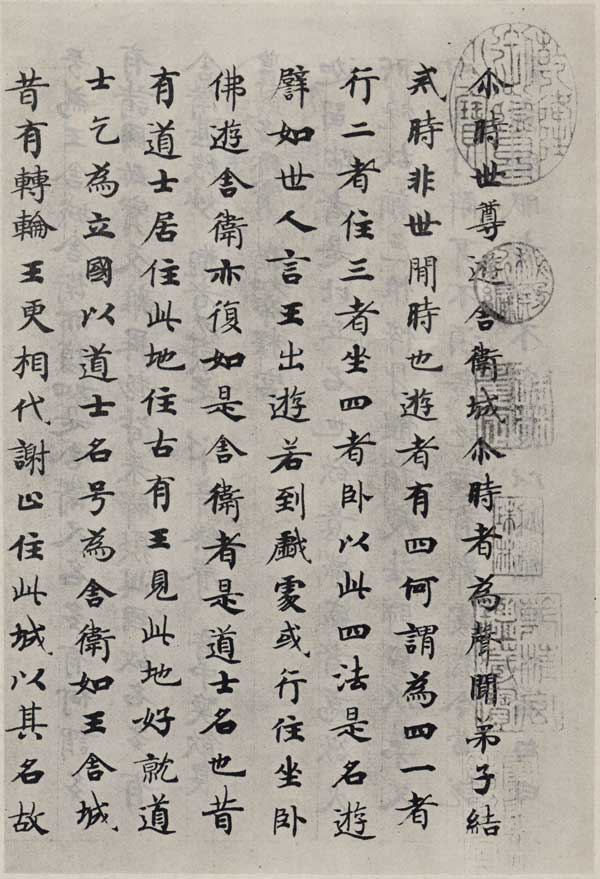 乾隆御覽之寶
尒時世尊遊舍衛城尒時者為聲聞弟子結
戒時非世閒時也遊者有四何謂為四一者
行二者住三者坐四者卧以此四法是名遊
譬如世人言王出遊若到戲處或行住坐卧
佛遊舍衛亦復如是舍衛者是道士名也昔
有道士居住此地住古有王見此地好就道
士乞為立國以道士名号為舍衛如王舍城
昔有轉輪王更相代謝止住此城以其名故